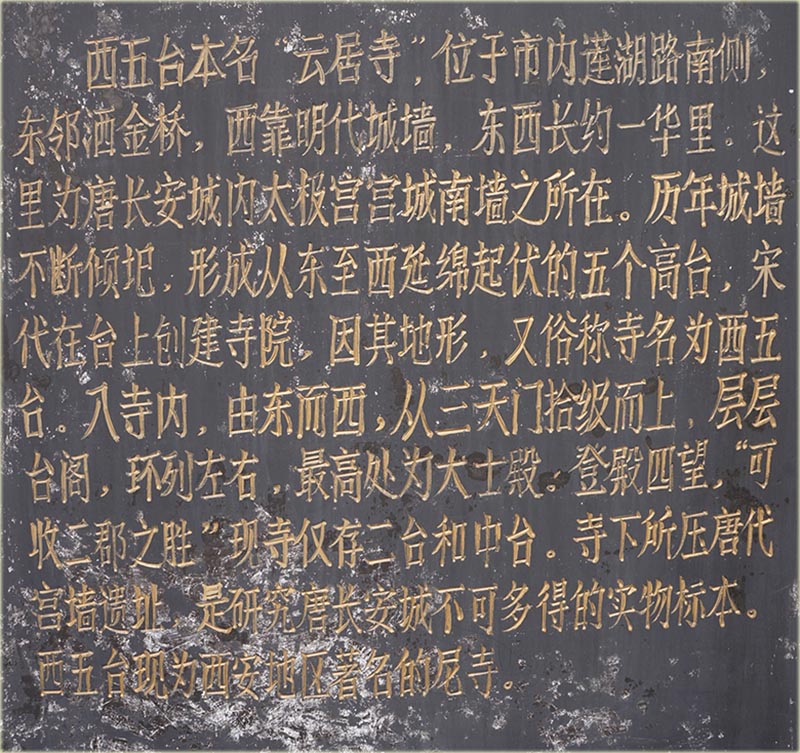 西五台本名“云居寺”，位于市内莲湖路南侧，
东邻洒金桥，西靠明代城墙，东西长约一华里。这
里为唐长安城内太极宫宫城南墙之所在。历年城墙
不断倾圯，形成从东至西延绵起伏的五个高台，宋
代在台上创建寺院，因其地形，又俗称寺名为西五
台。入寺内，由东而西，从三天门拾级而上，层层
台阁，环列左右，最高处为大士殿。登殿四望，“可
收二郡之胜”现寺仅存二台和中台。寺下所压唐代
宫墙遗址，是研究唐长安城不可多得的实物标本。
西五台现为西安地区著名的尼寺。